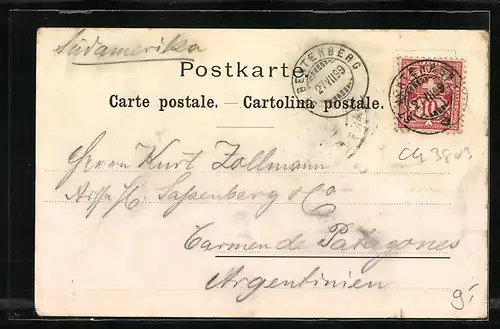 Südamerika
Postkarte.
Carte postale. — Cartolina postale.
BEATENBERG
27.VII.99
10
CH 3803
Herrn Kurt Zollmann
Sassenberg & Co
Carmen de Patagones
Argentinien
9.-